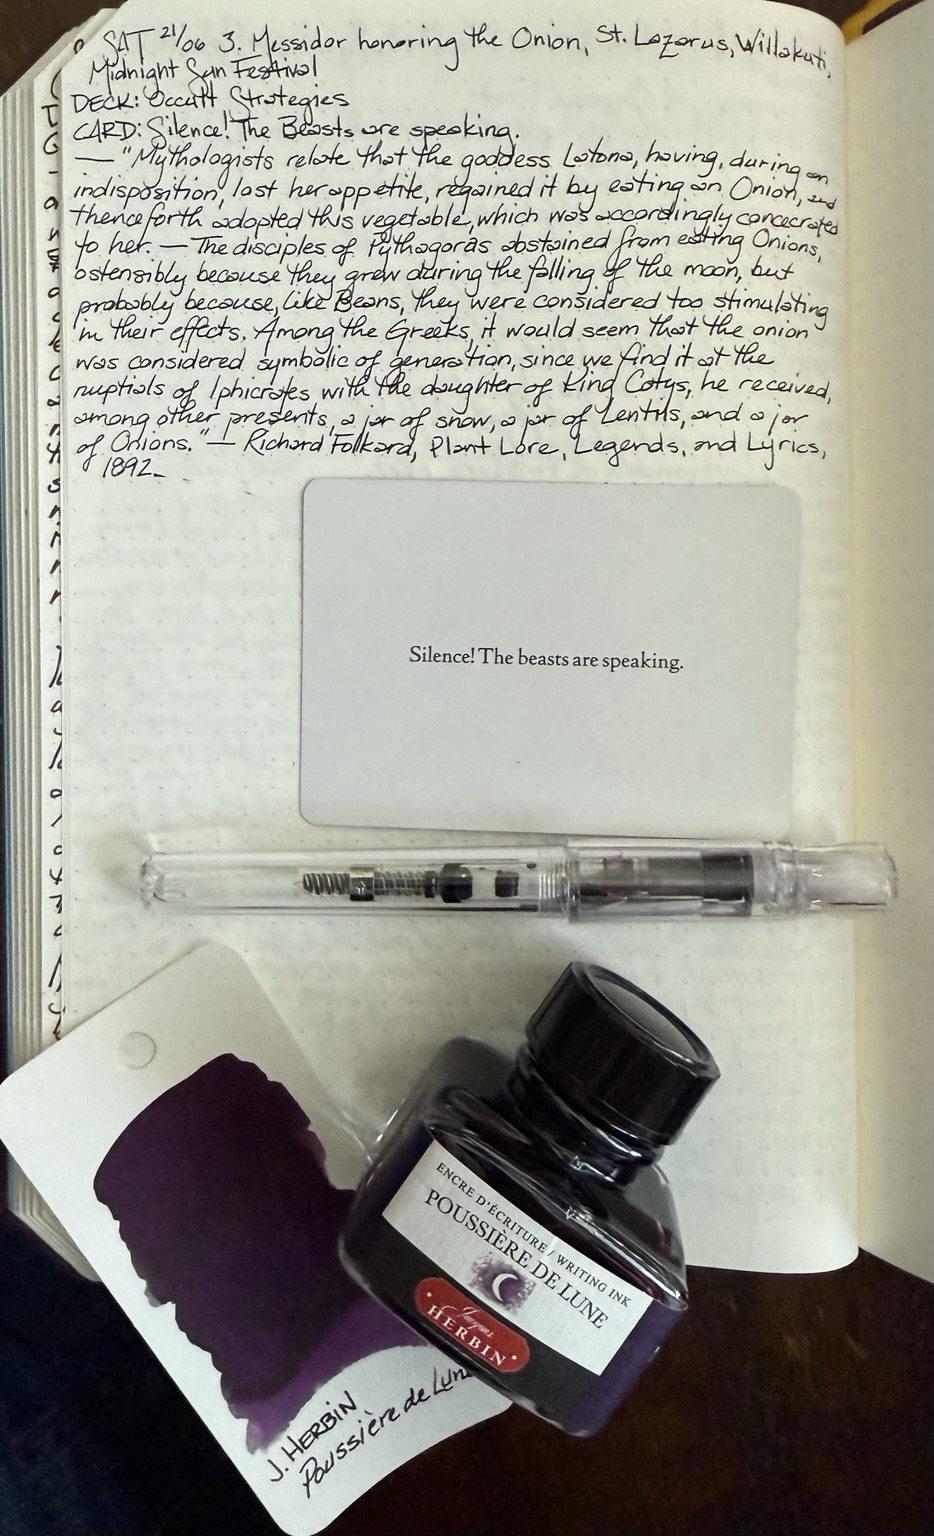 SAT 21/06 3. Messidor honoring the Onion, St. Lazarus, Willakuti,
Midnight Sun Festival
DECK: Occult Strategies
CARD: Silence! The Beasts are speaking.
— "Mythologists relate that the goddess Latona, having, during an
indisposition, lost her appetite, regained it by eating an Onion, and
thenceforth adopted this vegetable, which was accordingly concecrated
to her. — The disciples of Pythagoras abstained from eating Onions,
ostensibly because they grew during the falling of the moon, but
probably because, like Beans, they were considered too stimulating
in their effects. Among the Greeks, it would seem that the onion
was considered symbolic of generation, since we find it at the
nuptials of Iphicrates with the daughter of King Cotys, he received,
among other presents, a jar of snow, a jar of Lentils, and a jar
of Onions." — Richard Folkard, Plant Lore, Legends, and Lyrics,
1892.
Silence! The beasts are speaking.
ENCRE D'ÉCRITURE / WRITING INK
POUSSIÈRE DE LUNE
Jacques
HERBIN
J. HERBIN
Poussière de Lune